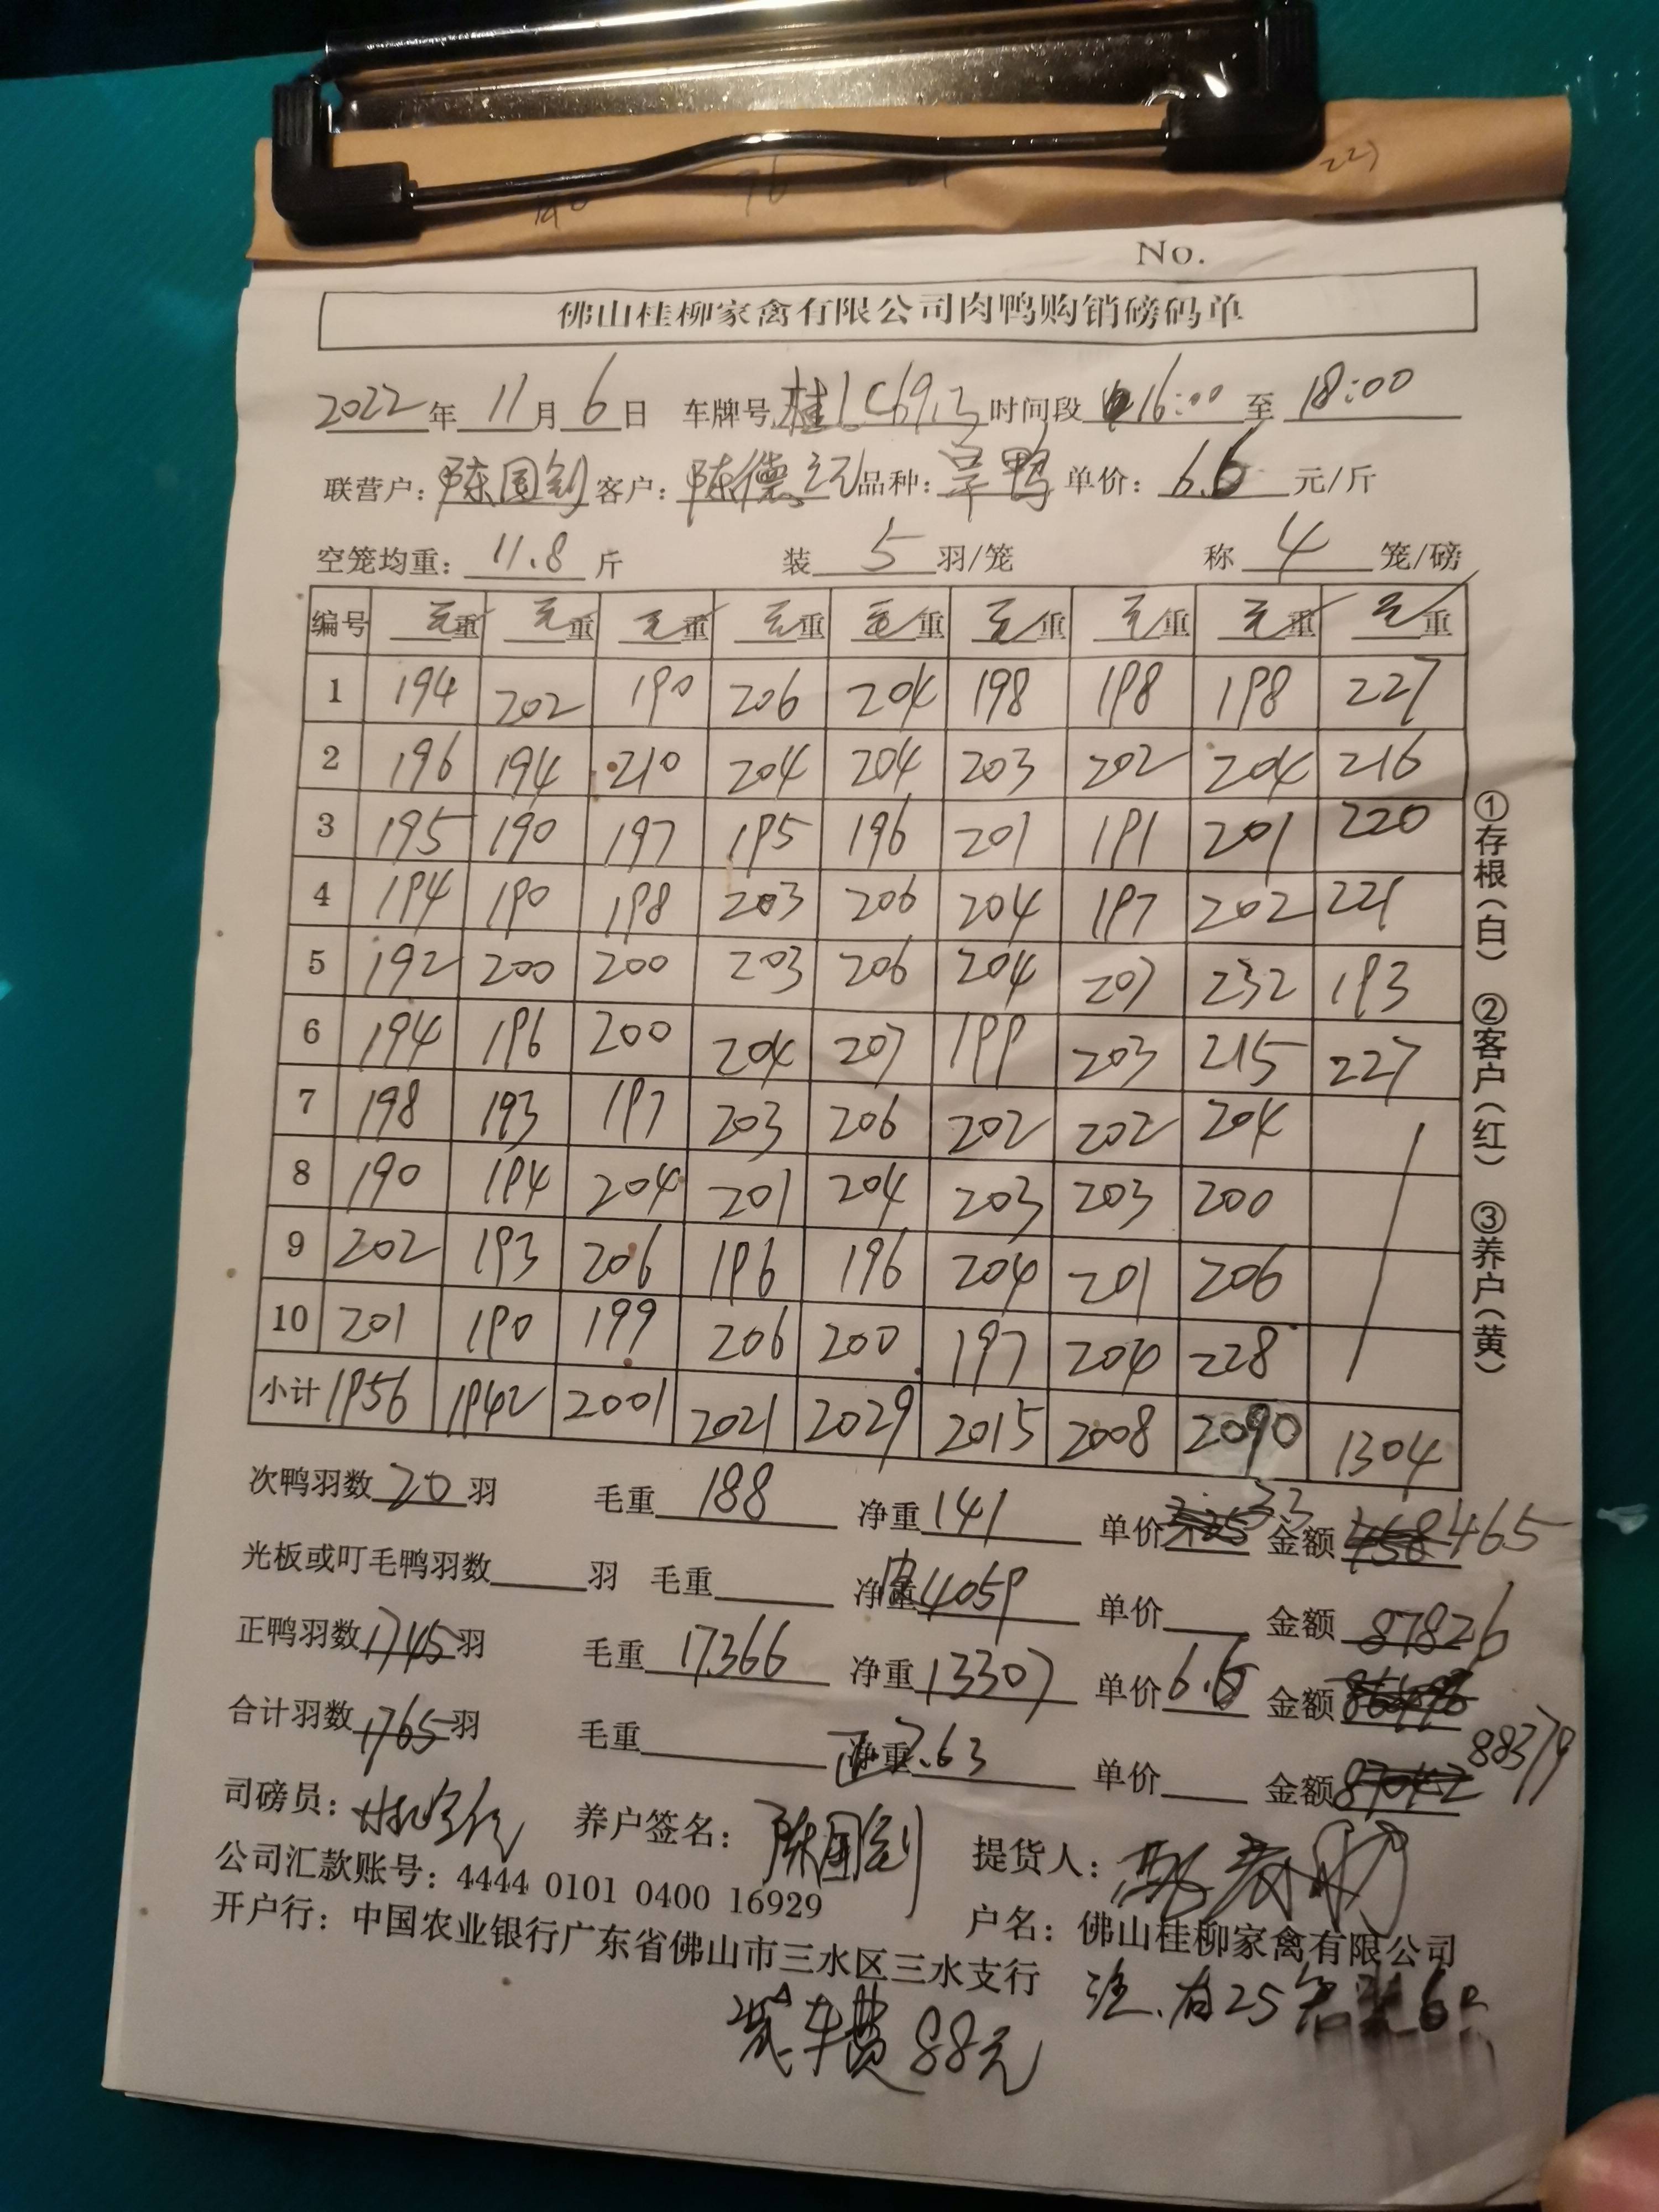 No.
佛山桂柳家禽有限公司肉鸭购销磅码单
2022年 11月 6日 车牌号 桂 时间段 16:00 至 18:00
联营户: 陈国钊 客户: 陈德 品种: 鸭 单价: 6.6 元/斤
空笼均重: 11.8 斤 装 5 羽/笼 称 4 笼/磅
编号 毛重 毛重 毛重 毛重 毛重 毛重 毛重 毛重 毛重
1 194 202 190 206 204 198 198 198 227
2 196 194 210 204 204 203 202 204 216
3 195 190 197 195 196 201 191 201 220
4 194 190 198 203 206 204 197 202 221
5 192 200 200 203 206 204 207 232 193
6 194 196 200 204 207 199 203 215 227
7 198 193 197 203 206 202 202 204
8 190 194 204 201 204 203 203 200
9 202 193 206 196 196 204 201 206
10 201 190 199 206 200 197 204 228
小计 1956 1942 2001 2021 2029 2015 2008 2090 1304
次鸭羽数 20 羽 毛重 188 净重 141 单价 3.3 金额 465
光板或叮毛鸭羽数 羽 毛重 净重 皮4059 单价 金额 87826
正鸭羽数 1745 羽 毛重 17366 净重 13307 单价 6.6 金额
合计羽数 1765 羽 毛重 净重 7.63 单价 金额 88379
司磅员: 养户签名: 陈国钊 提货人:
公司汇款账号: 4444 0101 0400 16929 户名: 佛山桂柳家禽有限公司
开户行: 中国农业银行广东省佛山市三水区三水支行
注、有25笼装6只
装车费 88元
①存根(白) ②客户(红) ③养户(黄)
227